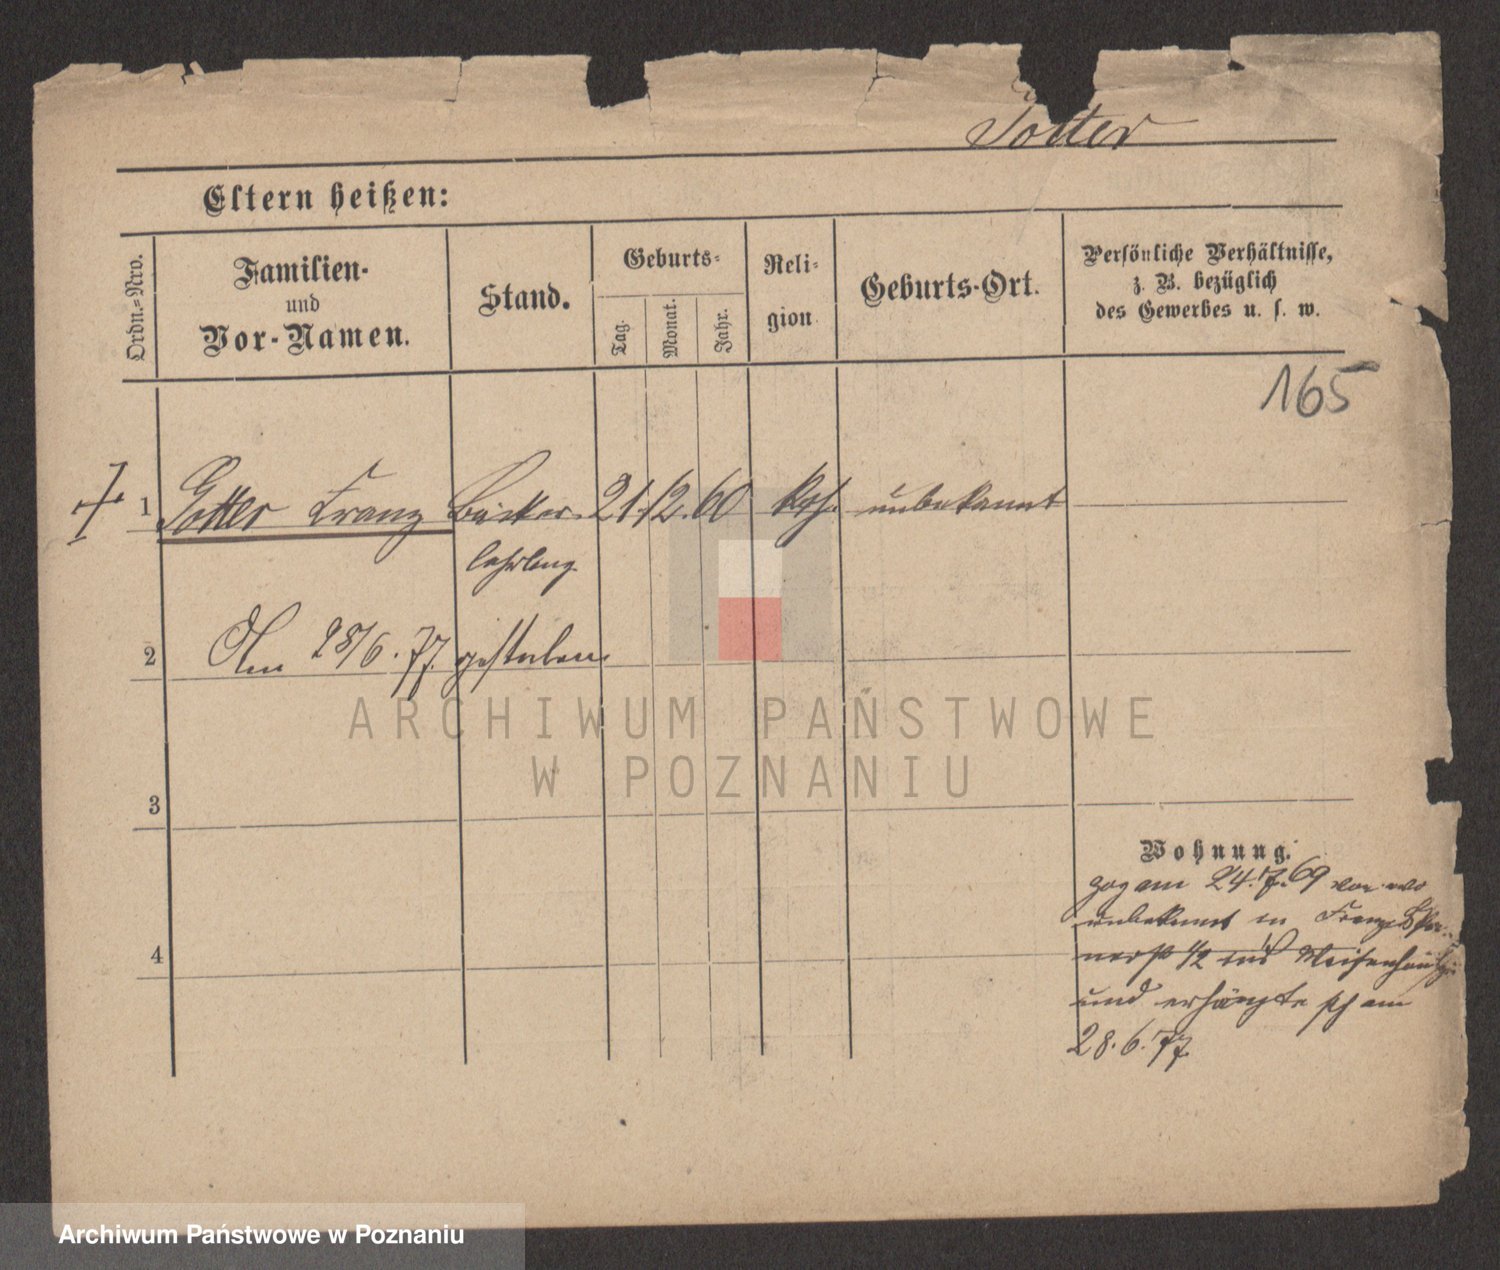 Totter
Eltern heißen:
Ordn.-Nro.
Familien-
und
Vor-Namen.
Stand.
Geburts-
Tag.
Monat.
Jahr.
Reli-
gion
Geburts-Ort.
Persönliche Verhältnisse,
z. B. bezüglich
des Gewerbes u. s. w.
165
1 Totter Franz Bäcker 21. 12. 60 kath. unbekannt
lehrling
2 Am 28/6. 77. gestorben
3
4
Wohnung.
zog am 24.7.69 von wo
unbekannt in
1/2 ins Waisenhaus
und erhängte sich am
28.6.77
ARCHIWUM PAŃSTWOWE
W POZNANIU
Archiwum Państwowe w Poznaniu